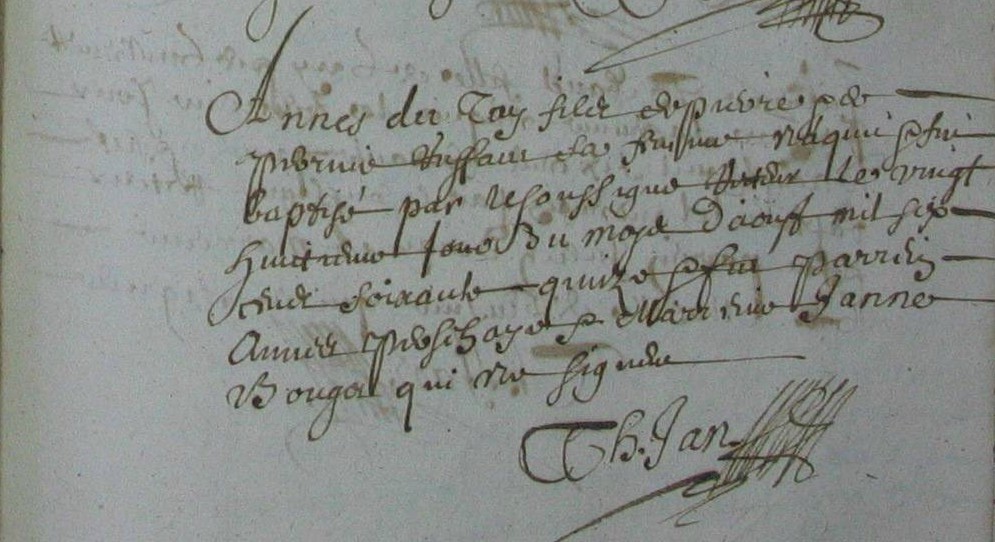 Annes du Tay filz de pierre & de
perrine Ruffaut sa femme naquit & fut
baptisé par le soussigné Recteur le vingt
huitieme jour du moys d'aoust mil six
cent soixante quinze & fut parrein
Annes & Marrine Janne
Bougot qui ne signent
Th. Jan